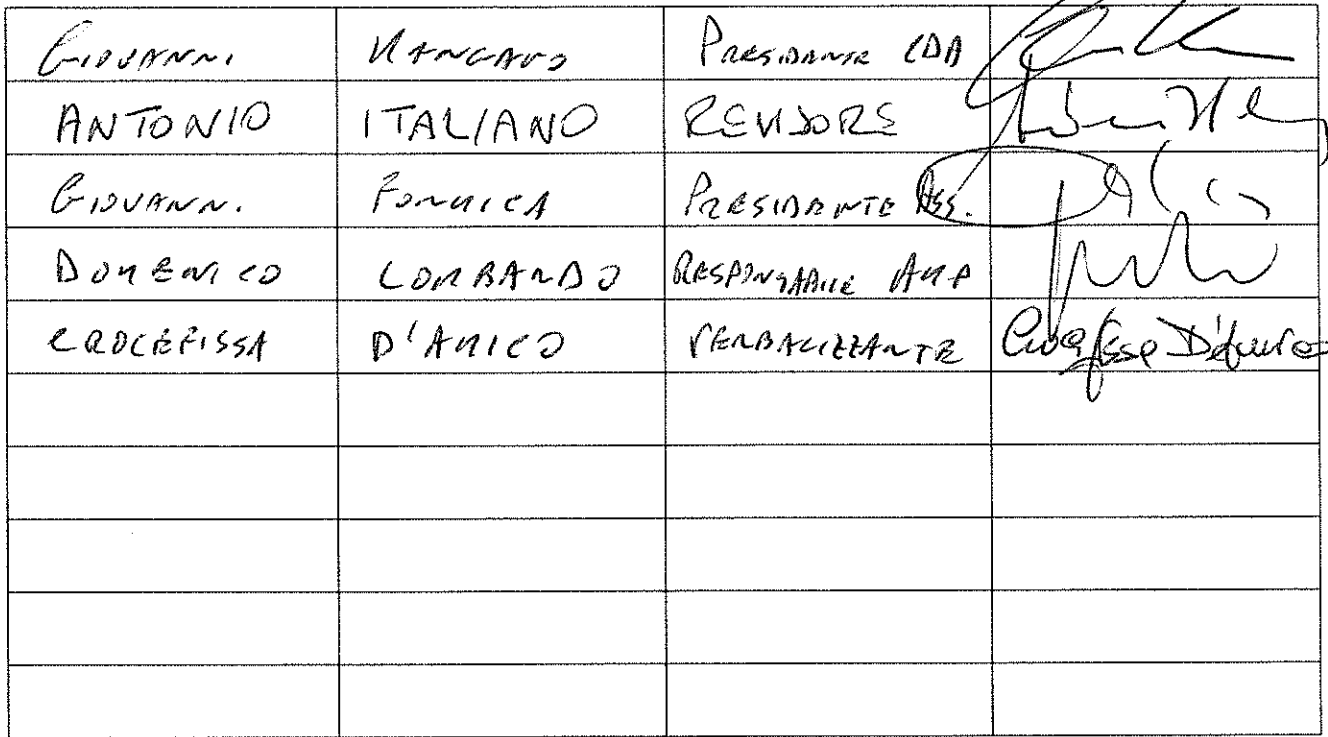 GIOVANNI MANGANO PRESIDENTE CDA
ANTONIO ITALIANO REVISORE
GIOVANNI FORMICA PRESIDENTE ASS.
DOMENICO LOMBARDO RESPONSABILE AMP
CROCEFISSA D'AMICO VERBALIZZANTE Crocefissa D'Amico